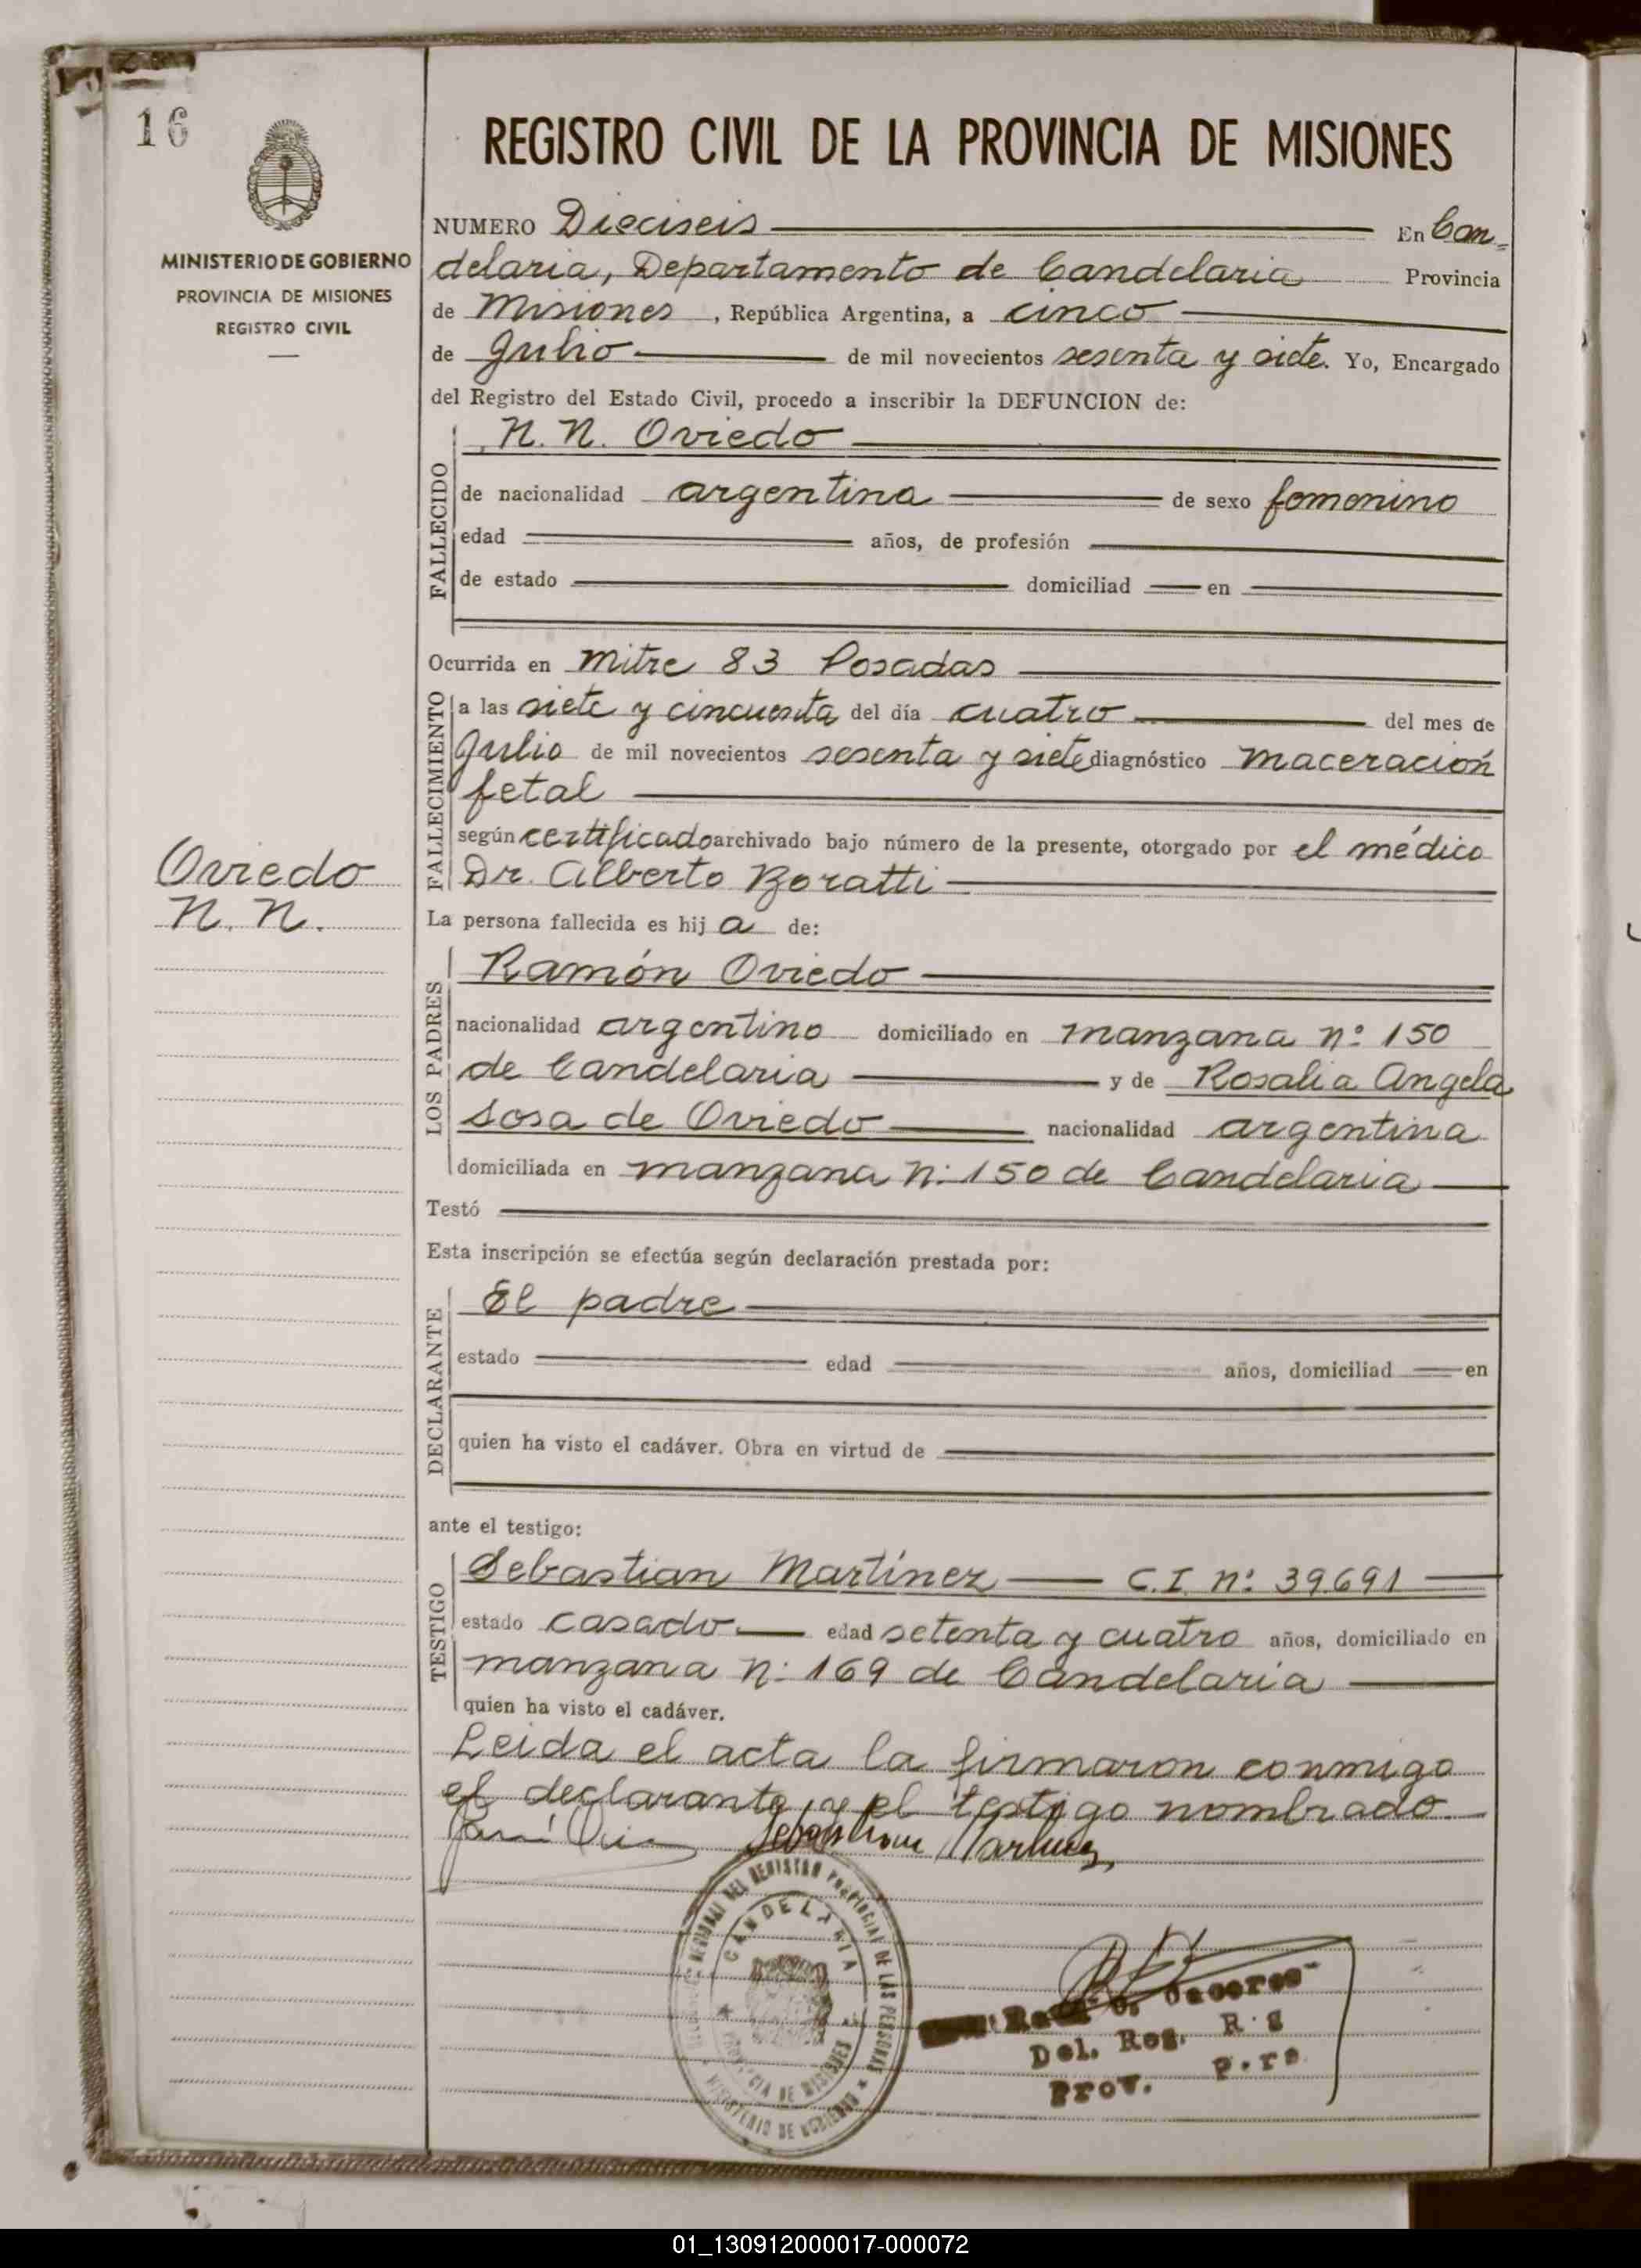 16
MINISTERIO DE GOBIERNO
PROVINCIA DE MISIONES
REGISTRO CIVIL
Oviedo
N. N.
REGISTRO CIVIL DE LA PROVINCIA DE MISIONES
NUMERO Dieciseis En Can=
delaria, Departamento de Candelaria Provincia
de Misiones, República Argentina, a cinco
de Julio de mil novecientos sesenta y siete. Yo, Encargado
del Registro del Estado Civil, procedo a inscribir la DEFUNCION de:
FALLECIDO
N. N. Oviedo
de nacionalidad argentina de sexo femenino
edad años, de profesión
de estado domiciliad en
Ocurrida en Mitre 83 Posadas
FALLECIMIENTO
a las siete y cincuenta del día cuatro del mes de
Julio de mil novecientos sesenta y siete diagnóstico maceración
fetal
según certificado archivado bajo número de la presente, otorgado por el médico
Dr. Alberto Boratti
La persona fallecida es hij a de:
LOS PADRES
Ramón Oviedo
nacionalidad argentino domiciliado en manzana nº 150
de Candelaria y de Rosalia Angela
Sosa de Oviedo nacionalidad argentina
domiciliada en manzana n: 150 de Candelaria
Testó
Esta inscripción se efectúa según declaración prestada por:
DECLARANTE
El padre
estado edad años, domiciliad en
quien ha visto el cadáver. Obra en virtud de
ante el testigo:
TESTIGO
Sebastian Martínez C.I. n: 39.691
estado casado edad setenta y cuatro años, domiciliado en
manzana n: 169 de Candelaria
quien ha visto el cadáver.
Leida el acta la firmaron conmigo
el declarante, y el testigo nombrado.
Sebastian Martinez
DEL REGISTRO PROVINCIAL DE LAS PERSONAS
CANDELARIA
PROVINCIA DE MISIONES
MINISTERIO DE GOBIERNO
Del. Reg. R.
Prov. P.rs
01_130912000017-000072